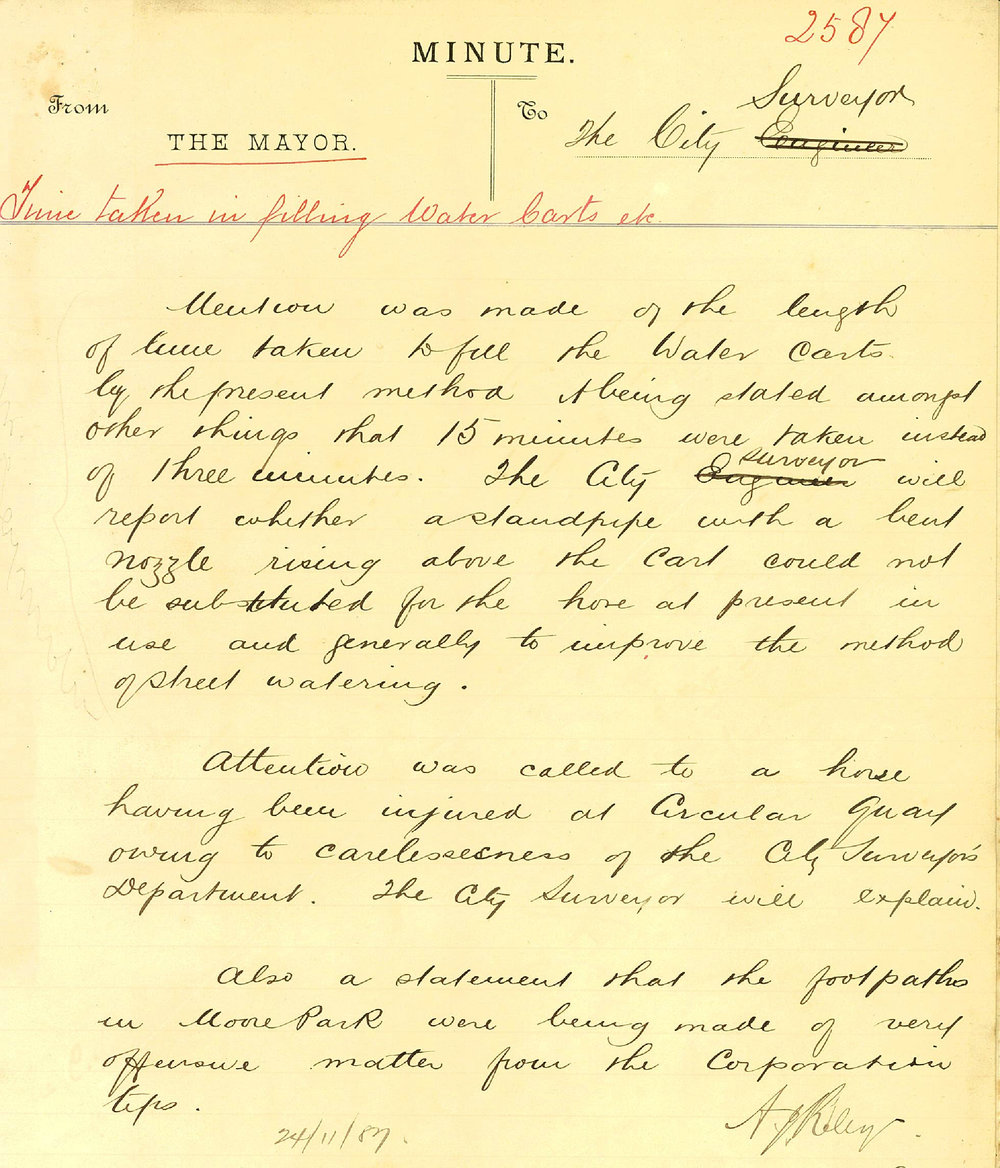 2587
MINUTE.
From
To
Surveyor
THE MAYOR.
The City Engineer
Time taken in filling Water Carts etc.
Mention was made of the length
of time taken to fill the Water Carts
by the present method it being stated amongst
other things that 15 minutes were taken instead
surveyor
of three minutes. The City Engineer will
report whether a standpipe with a bent
nozzle rising above the cart could not
be substituted for the hose at present in
use and generally to improve the method
of street watering.
Attention was called to a horse
having been injured at Circular Quay
owing to carelessness of the City Surveyor's
Department. The City Surveyor will explain.
Also a statement that the footpaths
in Moore Park were being made of very
offensive matter from the Corporation
tips.
24/11/87.
A J Riley